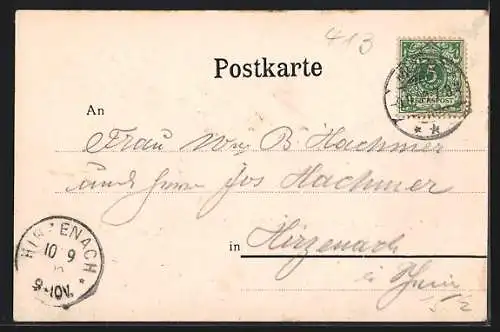 413
Postkarte
5
REICHSPOST
An
Frau Ww B Hachmer
und Herrn Jos Hachmer
in Hirzenach
HIRZENACH
10 9
8-10V.